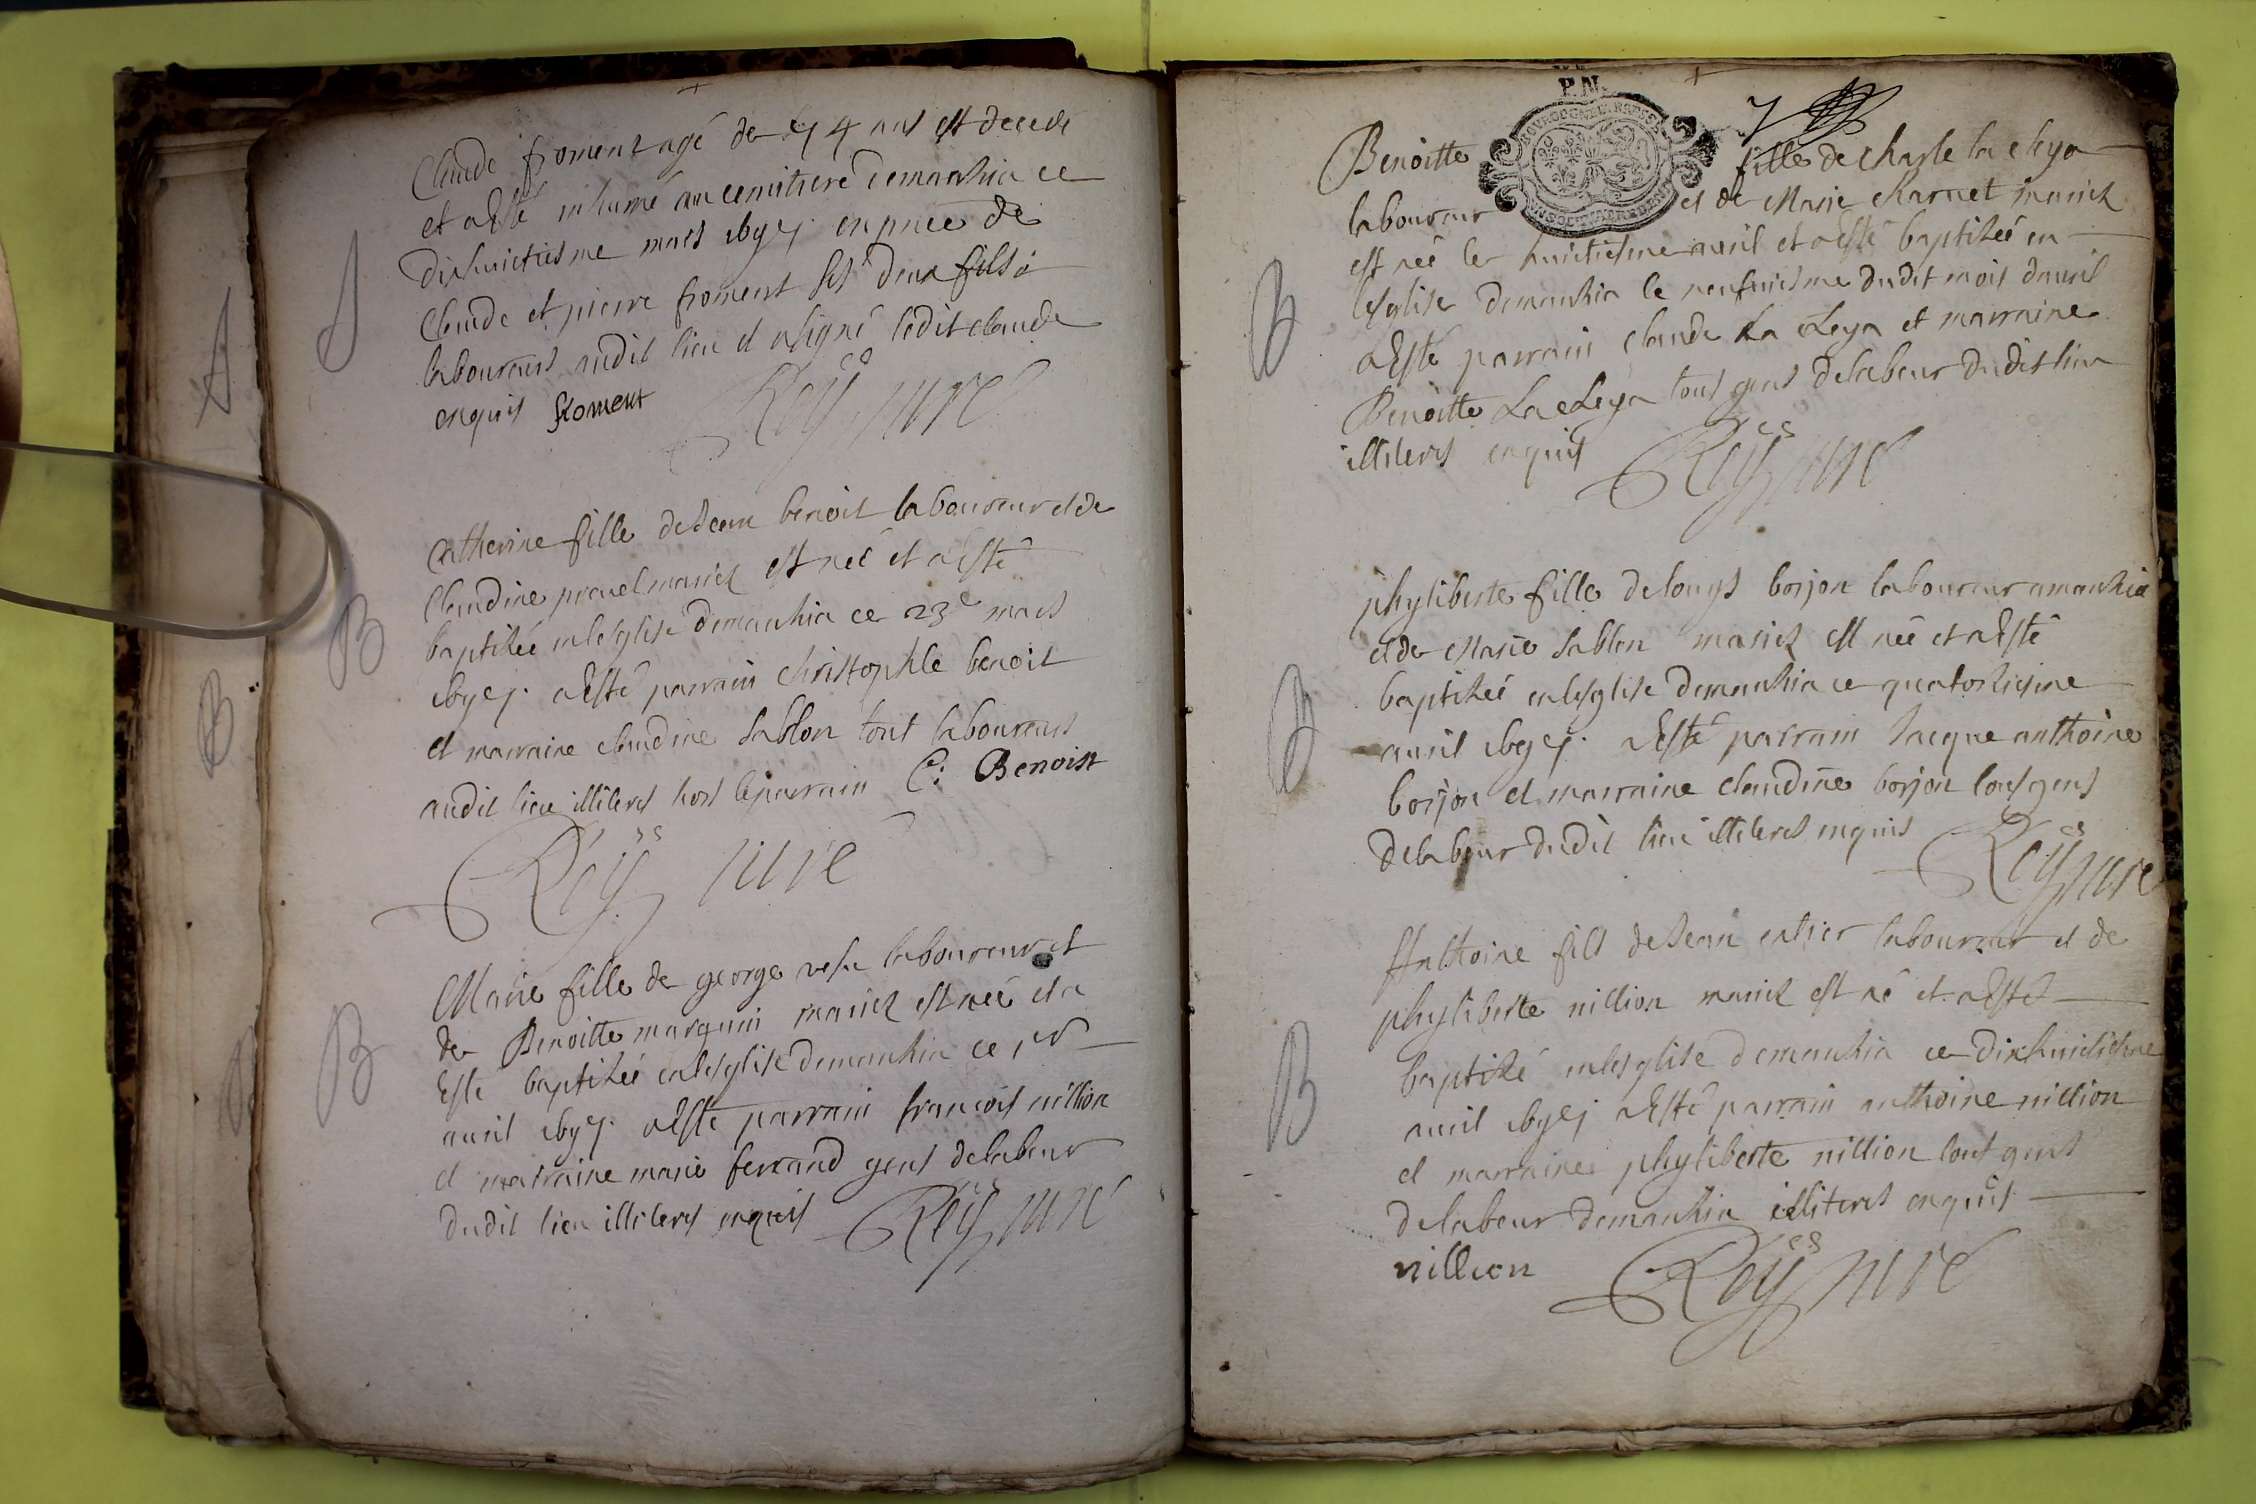 Claude froment agé de 74 ans est decedé
et a Esté inhumé au cemitiere demanhia ce
dixhuictiesme mars en pnce de
Claude et pierre froment ses deux fils
laboureurs audit lieu et a signé ledit claude
enquis froment
Roÿ curé
B
Catherine fille de Jean benoit laboureur et de
Claudine mariez est neé et a Esté
baptiseé en lesglise demanhia ce 23e mars
a Esté parrain christophle benoit
et marraine claudine sablon tout laboureurs
audit lieu illiteres hors le parrain C: Benoist
Roÿ curé
B
Marie fille de george laboureur et
de Benoitte marguin mariez est neé et a
Esté baptiseé en lesglise demanhia ce
auril a Esté parrain francois nillion
et marraine marie ferrand gens delabeur
dudit lieu illiteres enquis Roÿ curé
B
P.N.
7
Benoitte fille de charle la cleya
laboureur et de Marie charnet mariez
est neé le huictiesme auril et a esté baptiseé en
lesglise demanhia le neufuiesme dudit mois dauril
a Esté parrain claude La cleya et marraine
Benoitte La cleya tous gens delabeur dudit lieu
illiteres enquis Roÿ curé
B
phyliberte fille de louys borjon laboureur amanhia
et de Marie sablon mariez est neé et a Esté
baptiseé en lesglise demanhia ce quatorsiesme
auril a Esté parrain Jacque anthoine
borjon et marraine claudine borjon tous gens
delabeur dudit lieu illiteres enquis
Roÿ curé
B
Anthoine fils de Jean laboureur et de
phyliberte nillion mariez est né et a Esté
baptisé en lesglise demanhia ce dixhuictiesme
auril a Esté parrain anthoine nillion
et marraine phyliberte nillion tous gens
delabeur demanhia illiteres enquis
nillion Roÿ curé
B